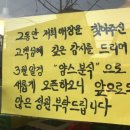 그동안 저희매장을 찾아주신
고객님께 깊은 감사를 드리며
3월말경 "얌스분식"으로
새롭게 오픈하오니 앞으로도
많은 성원 부탁드립니다